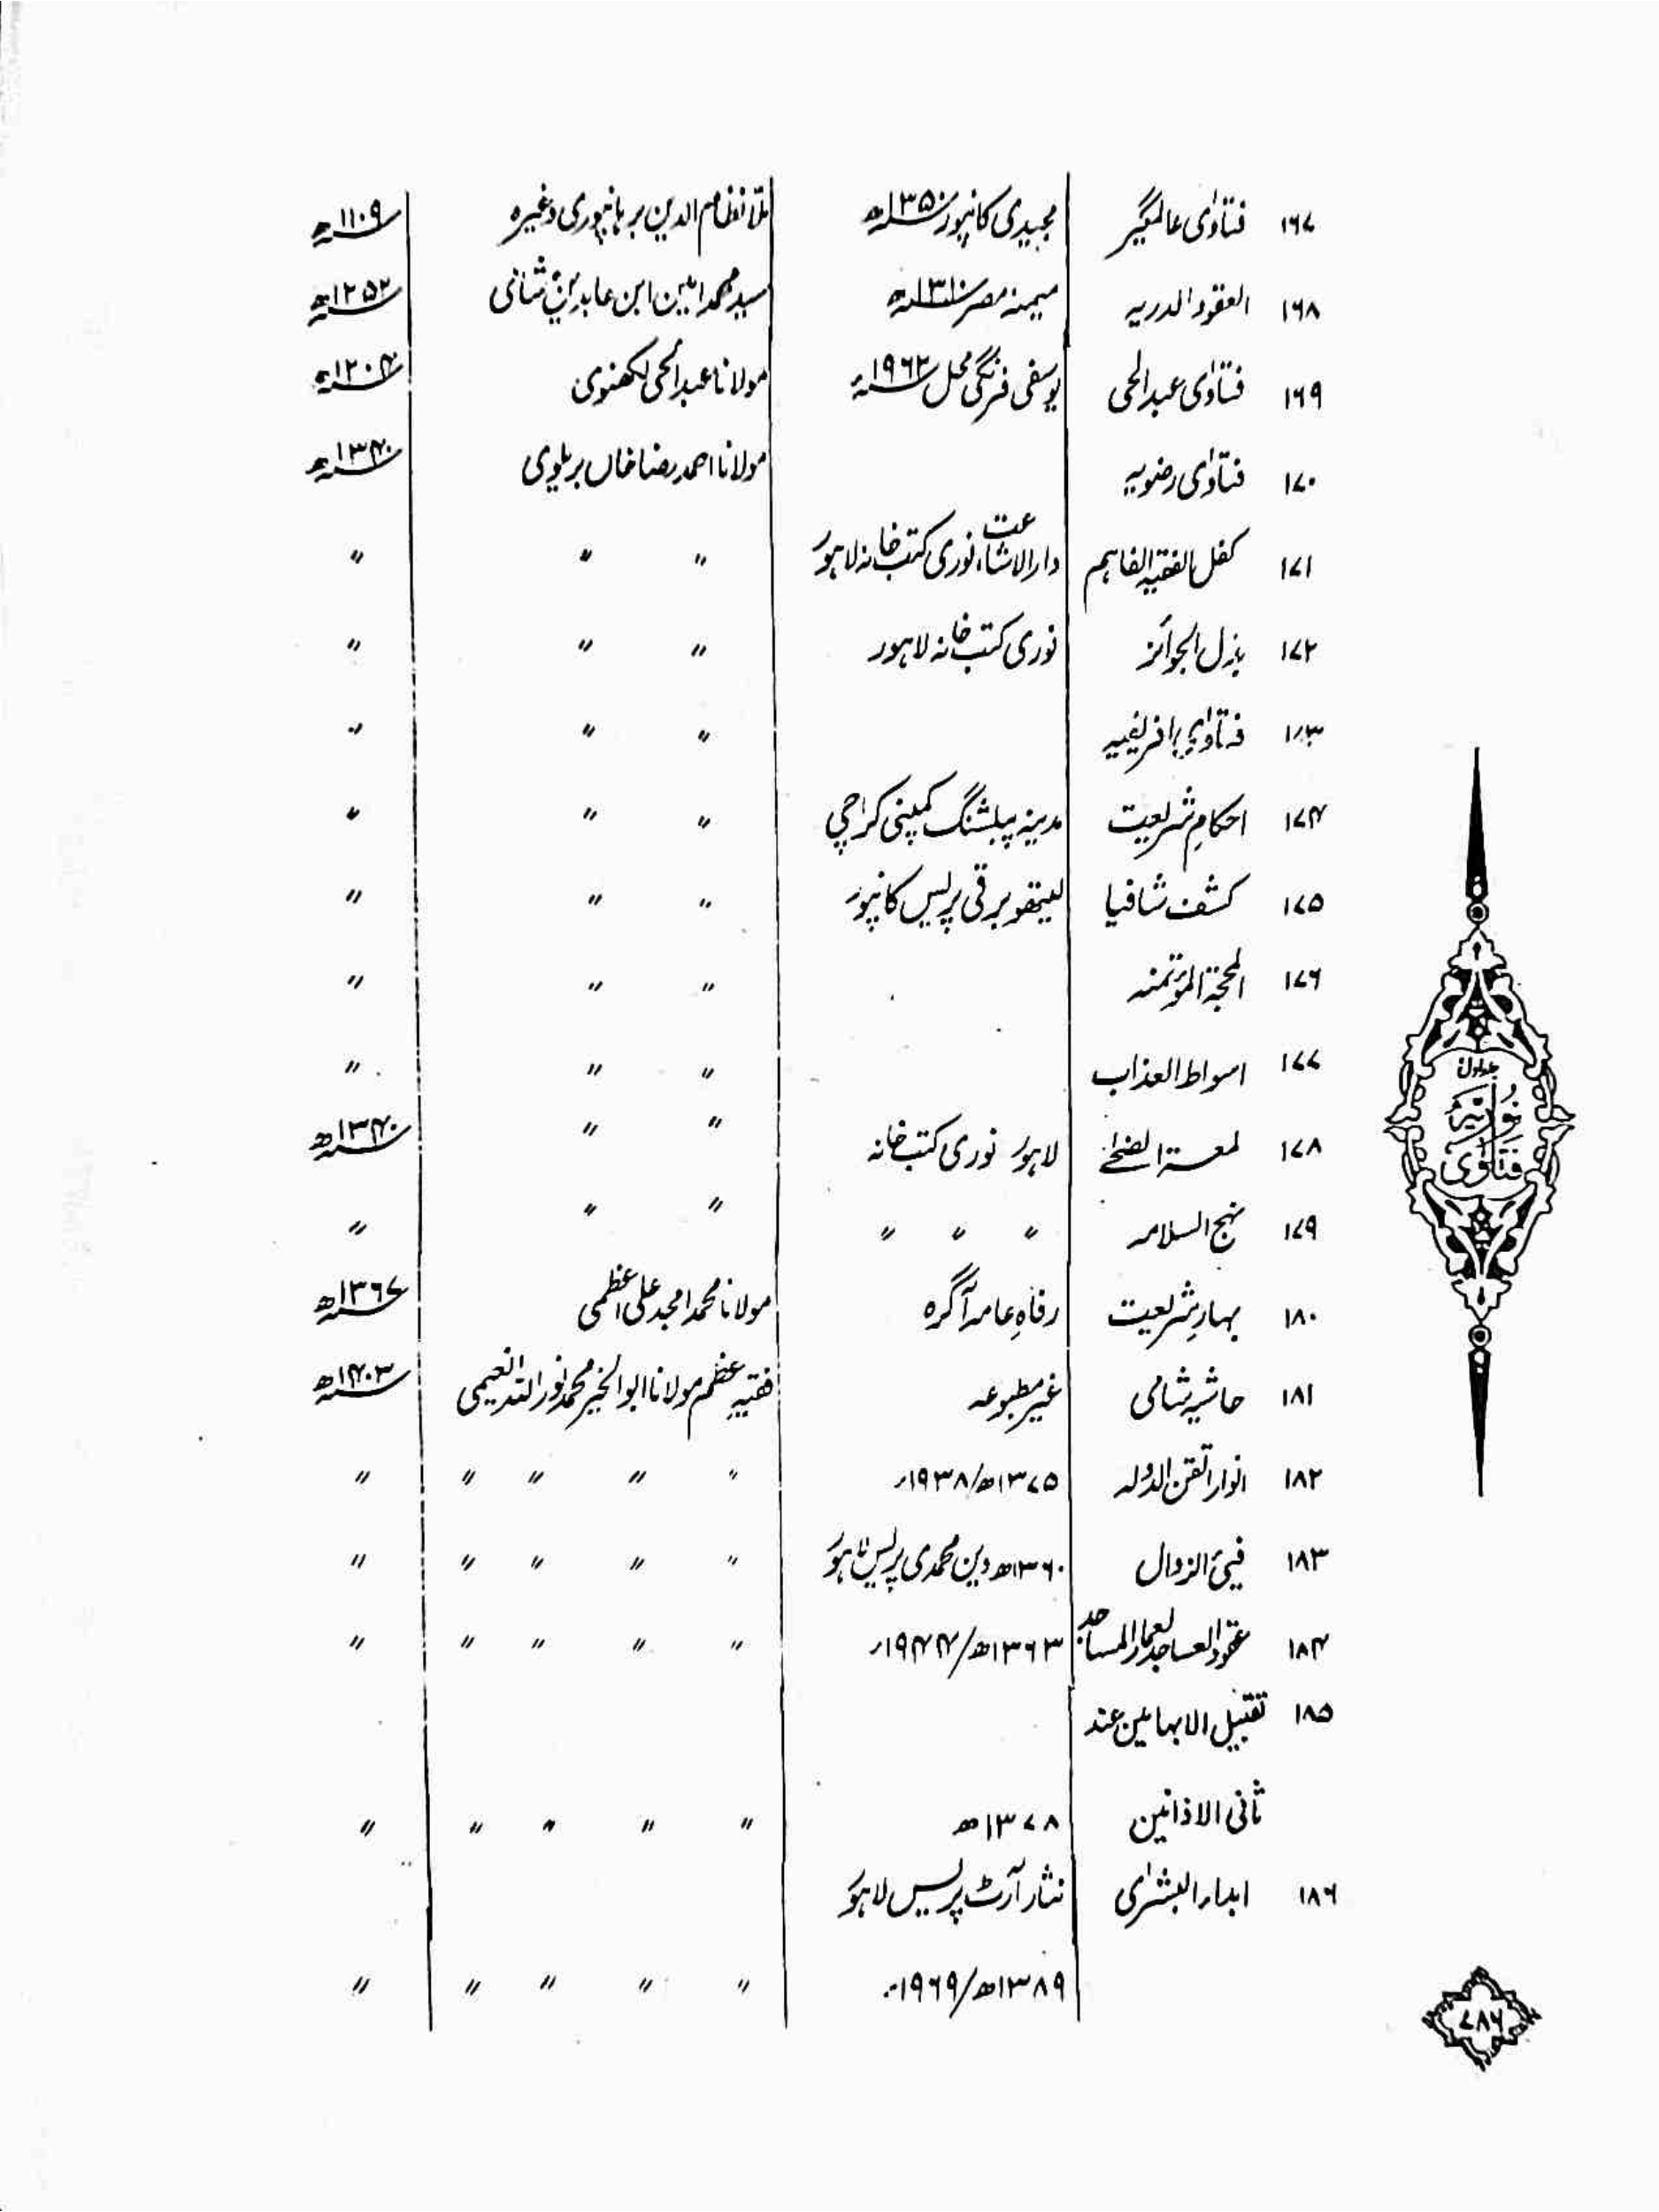 ۱۶۷ فتاوٰی عالمگیر مجیدی کانپور ۱۳۵۰ھ ملّا نظام الدین برہانپوری وغیرہ ۱۱۰۹ھ
۱۶۸ العقود الدریہ میمنہ مصر ۱۳۱۰ھ سید محمد امین ابن عابدین شامی ۱۲۵۲ھ
۱۶۹ فتاوٰی عبدالحی یوسفی فرنگی محل ۱۹۶۲ء مولانا عبدالحی لکھنوی ۱۲۰۴ھ
۱۷۰ فتاوٰی رضویہ مولانا احمد رضا خاں بریلوی ۱۳۴۰ھ
۱۷۱ کفل الفقیہ الفاہم دارالاشاعت، نوری کتب خانہ لاہور 〃 〃 〃
۱۷۲ بذل الجوائز نوری کتب خانہ لاہور 〃 〃 〃
۱۷۳ فتاوٰی افریقیہ 〃 〃 〃
۱۷۴ احکامِ شریعت مدینہ پبلشنگ کمپنی کراچی 〃 〃 〃
۱۷۵ کشف شافیا لیتھو برقی پریس کانپور 〃 〃 〃
۱۷۶ المحجۃ المؤتمنہ 〃 〃 〃
۱۷۷ اسواط العذاب 〃 〃 〃
۱۷۸ لمعۃ الضحٰے لاہور نوری کتب خانہ 〃 〃 ۱۳۴۰ھ
۱۷۹ نہج السلامہ 〃 〃 〃 〃 〃 〃
۱۸۰ بہارِ شریعت رفاہِ عامہ آگرہ مولانا محمد امجد علی اعظمی ۱۳۶۷ھ
۱۸۱ حاشیہ شامی غیر مطبوعہ فقیہِ اعظم مولانا ابوالخیر محمد نور اللہ نعیمی ۱۴۰۳ھ
۱۸۲ انوار اتقن الدولہ ۱۳۷۵ھ/۱۹۳۸ء 〃 〃 〃 〃 〃
۱۸۳ فیئ الزوال ۱۳۶۰ھ دین محمدی پریس لاہور 〃 〃 〃 〃 〃
۱۸۴ عقود العساجد لعمار المساجد ۱۳۶۳ھ/۱۹۴۴ء 〃 〃 〃 〃 〃
۱۸۵ تقبیل الابہامین عند
ثانی الاذانین ۱۳۷۸ھ 〃 〃 〃 〃 〃
۱۸۶ ابداء البشرٰی نثار آرٹ پریس لاہور
۱۳۸۹ھ/۱۹۶۹ء 〃 〃 〃 〃 〃
جلد اول
فتاوٰی نوریّہ
۷۸۶